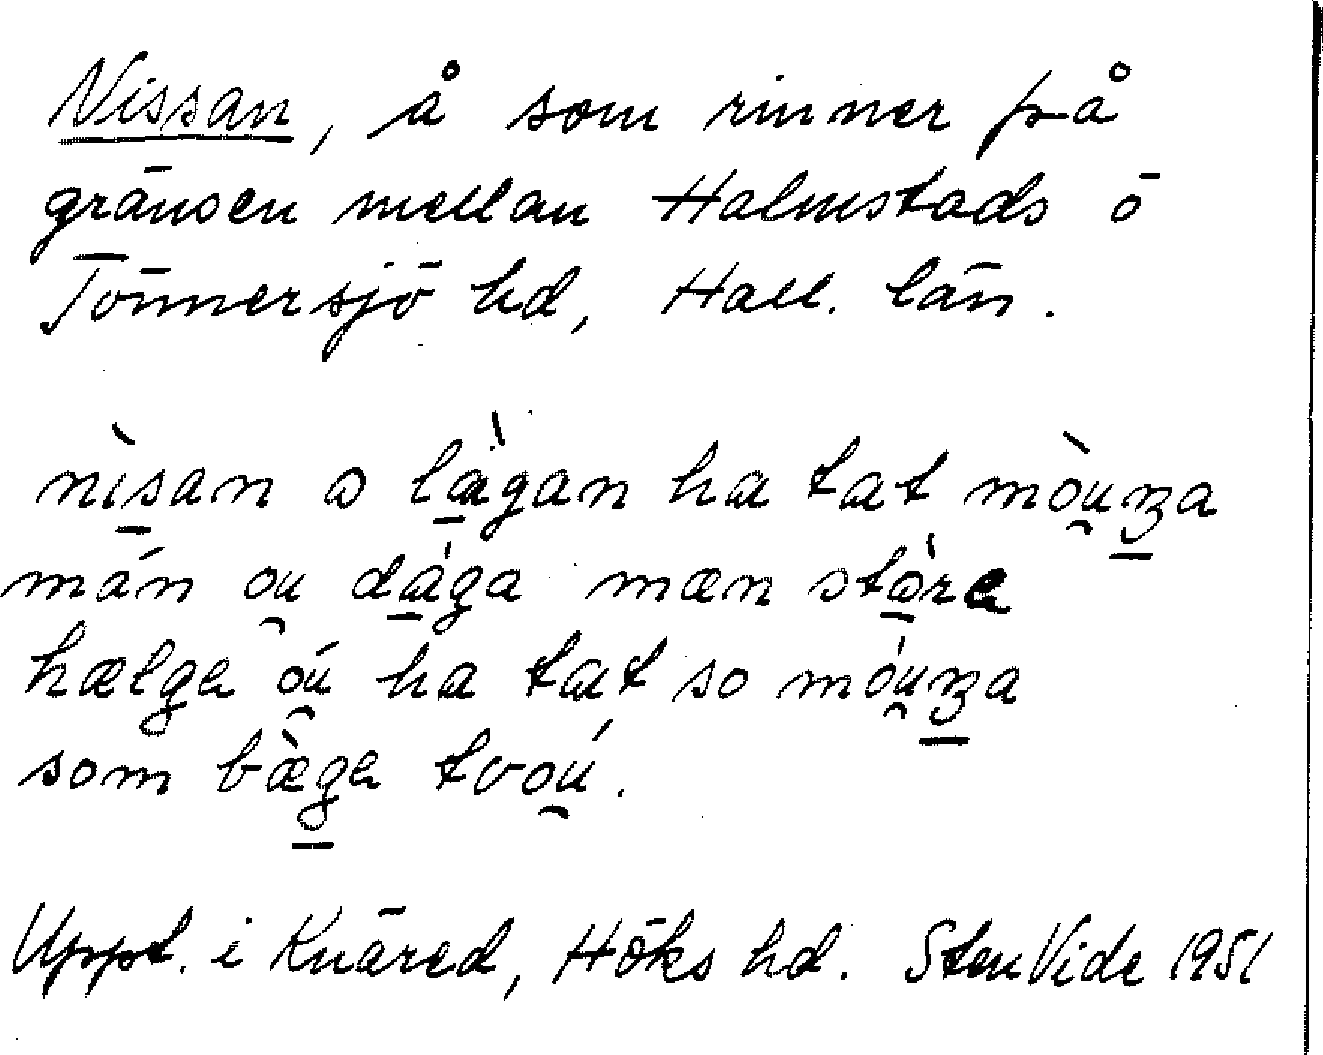 Nissan, å som rinner på
gränsen mellan Halmstads o
Tönnersjö hd, Hall. län.
nìsan o làgan ha tat mòu̯ʒa
mán ou̯ dága mæn stòra
hælge óu̯ ha tat so móu̯ʒa
som bæ̀ge tvóu̯.
Uppt. i Knäred, Höks hd. Sten Vide 1951